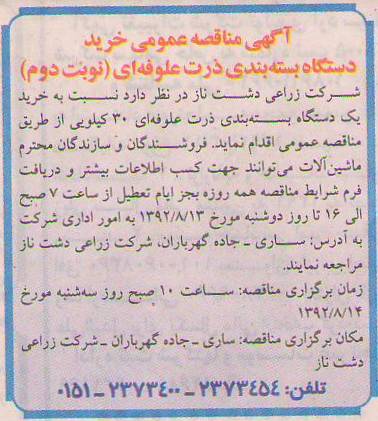 آگهی مناقصه عمومی خرید
دستگاه بسته‌بندی ذرت علوفه‌ای (نوبت دوم)
شرکت زراعی دشت ناز در نظر دارد نسبت به خرید
یک دستگاه بسته‌بندی ذرت علوفه‌ای ۳۰ کیلویی از طریق
مناقصه عمومی اقدام نماید. فروشندگان و سازندگان محترم
ماشین‌آلات می‌توانند جهت کسب اطلاعات بیشتر و دریافت
فرم شرایط مناقصه همه روزه بجز ایام تعطیل از ساعت ۷ صبح
الی ۱۶ تا روز دوشنبه مورخ ۱۳۹۲/۸/۱۳ به امور اداری شرکت
به آدرس: ساری ـ جاده گهرباران، شرکت زراعی دشت ناز
مراجعه نمایند.
زمان برگزاری مناقصه: ساعت ۱۰ صبح روز سه‌شنبه مورخ
۱۳۹۲/۸/۱۴
مکان برگزاری مناقصه: ساری ـ جاده گهرباران ـ شرکت زراعی
دشت ناز
تلفن: ۲۳۷۳۴۵۴ ـ ۲۳۷۳۴۰۰ ـ ۰۱۵۱